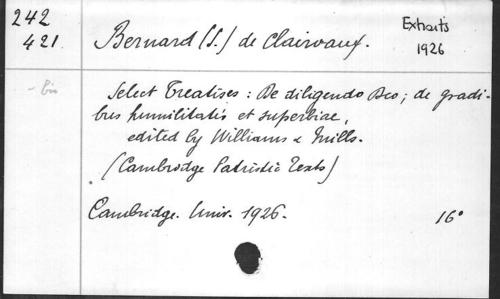 242
421
Bernard (S.) de Clairvaux.
Extraits
1926
- bis
Select Treatises : De diligendo Deo; de gradi-
bus humilitatis et superbiae,
edited by Williams & Mills.
(Cambridge Patristic Texts)
Cambridge. Univ. 1926.
16°